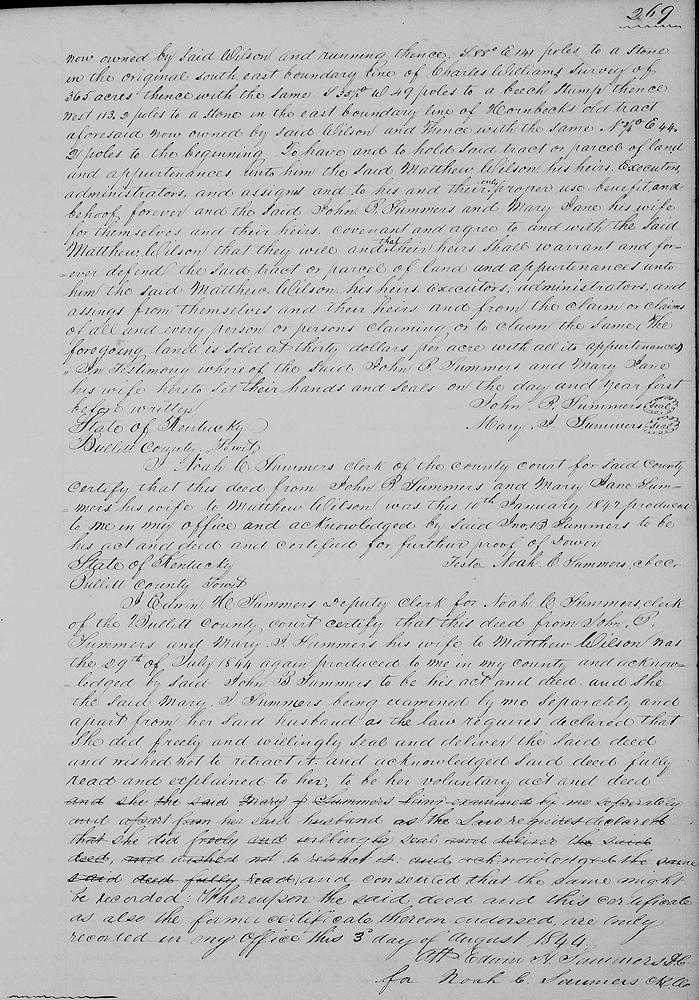 269
now owned by said Wilson and running thence. S 88° E 141 poles to a stone
in the original south east boundary line of Charles Williams survey of
365 acres thence with the same S 35½° W 49 poles to a beech stump thence
West 113.2 poles to a stone in the east boundary line of Hornbecks old tract
aforesaid now owned by said Wilson and thence with the same N E 44.
2 poles to the beginning. To have and to hold said tract or parcel of land
and appurtenances unto him the said Matthew Wilson his heirs. Executors,
administrators, and assigns and to his and their only proper use benefit and
behoof forever and the said John P. Summers and Mary Jane his wife
for themselves and their heirs. covenant and agree to and with the said
Matthew Wilson that they will and that their heirs shall warrant and for-
-ever defend the said tract or parcel of land and appurtenances unto
him the said Matthew Wilson his heirs. Executors, administrators. and
assings from themselves and their heirs and from the claim or claims
of all and every person or persons claiming or to claim the same (The
foregoing land is sold at thirty dollars per acre with all its appurtenances)
In Testimony where of the said John P Summers and Mary Jane
his wife hereto set their hands and seals on the day and year first
before written John P. Summers Seal
State of Kentucky Mary J Summers Seal
Bullitt County Towit
I Noah C Summers clerk of the county court for said County
certify that this deed from John P Summers and Mary Jane Sum-
-mers his wife to Matthew Wilson was this 10th January 1842 produced
to me in my office and acknowledged by said Jno. B Summers to be
his act and deed and certified for further proof of Dower
State of Kentucky Teste Noah C Summers, cbcc
Bullitt County Towit
I Edwin H Summers Deputy Clerk for Noah C Summers, clerk
of the Bullitt County court certify that this deed from John. P.
Summers and Mary J. Summers his wife to Matthew Wilson was
the 29th of July 1844 again produced to me in my county and acknow-
-ledged by said John B Summers to be his act and deed. and she
the said Mary J Summers being examined by me separately and
apart from her said husband as the law requires declared that
she did freely and willingly seal and deliver the said deed
and wished not to retract it. and acknowledged said deed fully
read and explained to her, to be her voluntary act and deed
and she the said Mary J Summers being examined by me seperately
and apart from her said husband as the Law requires declared
that she did freely and willingly seal and deliver the said
deed, and wished not to retract it: and acknowledged the same
said deed fully read, and consented that the same might
be recorded: Whereupon the said deed and this certificate
as also the former certificate thereon endorsed, are truly
recorded in my office this 3d day of August 1844
Att Edwin H. Summers D.C.
for Noah C. Summers Clk